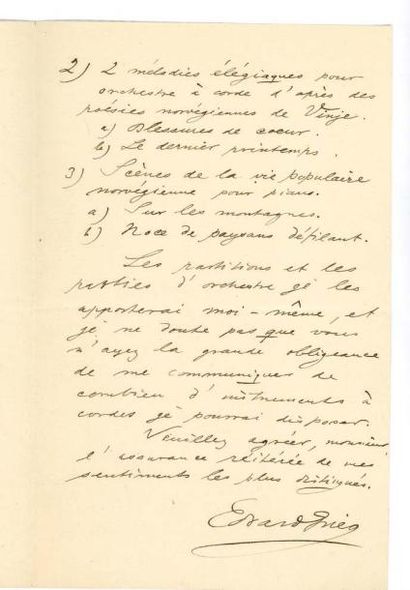 2) 2 mélodies élégiaques pour
orchestre à corde d'après des
poésies norvégiennes de Vinje.
a) Blessures de coeur.
b) Le dernier printemps.
3) Scènes de la vie populaire
norvégienne pour piano.
a) Sur les montagnes.
b) Noce de paysans défilant.
Les partitions et les
parties d'orchestre je les
apporterai moi-même, et
je ne doute pas que vous
n'ayez la grande obligeance
de me communiquer de
combien d'instruments à
cordes je pourrai disposer.
Veuillez agréer, monsieur
l'assurance réitérée de mes
sentiments les plus distingués.
Edvard Grieg